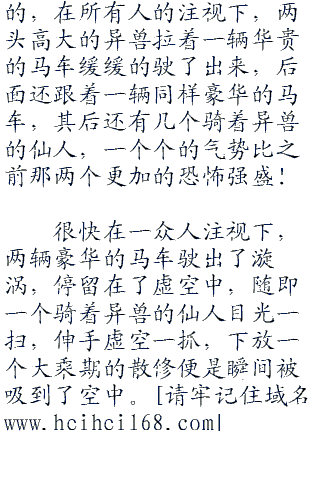 的，在所有人的注视下，两
头高大的异兽拉着一辆华贵
的马车缓缓的驶了出来，后
面还跟着一辆同样豪华的马
车，其后还有几个骑着异兽
的仙人，一个个的气势比之
前那两个更加的恐怖强盛！
很快在一众人注视下，
两辆豪华的马车驶出了漩
涡，停留在了虚空中，随即
一个骑着异兽的仙人目光一
扫，伸手虚空一抓，下放一
个大乘期的散修便是瞬间被
吸到了空中。[请牢记住域名
www.hcihci168.com|